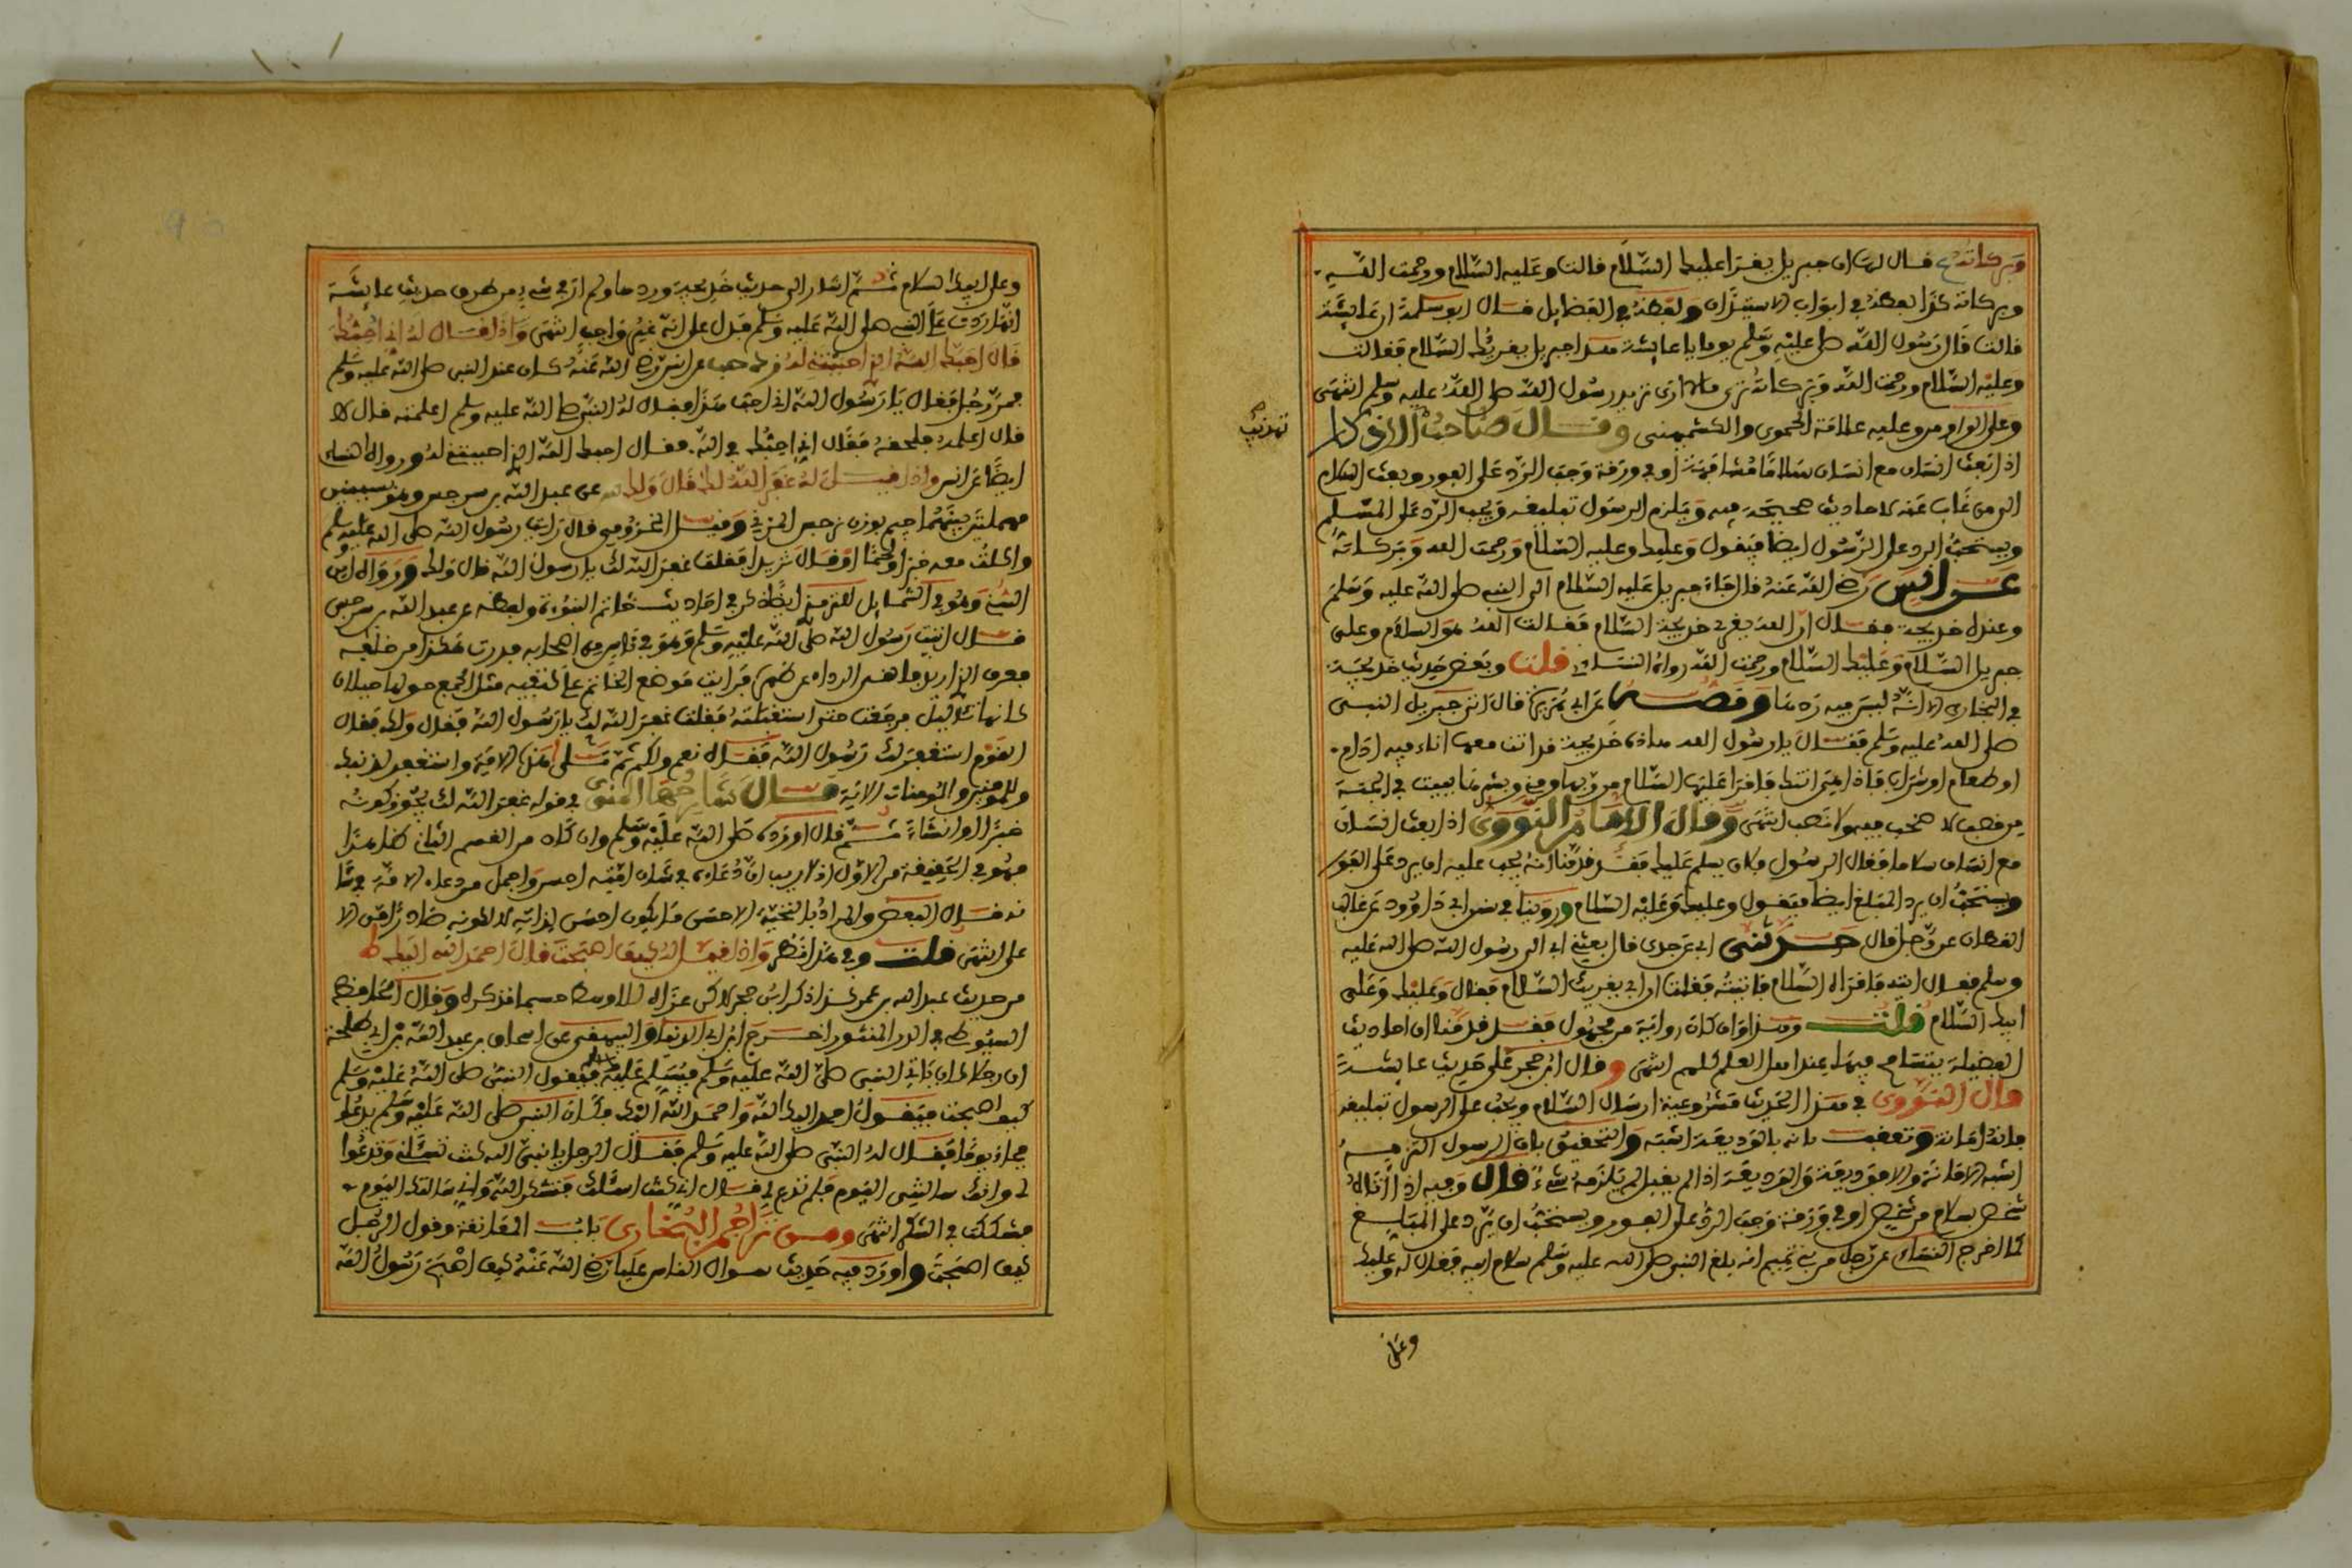 وبركاته فقال لها ان جبريل يقرا عليك السلام قالت وعليه السلام ورحمت الله
وبركاته كذا لفظه في ابواب الاستيذان ولفظه في الفضايل قال ابو سلمة ان عايشة
قالت قال رسول الله صلى عليه وسلم يوما يا عايشة هذا جبريل يقريك السلام فقالت
وعليه السلام ورحمت الله وبركاته ترى ما لا ارى تريد رسول الله صلى الله عليه وسلم انتهى
تهذيب
وعلى الواو من وعليه علامة الحموي والكشميهني وقال صاحب الاذكار
اذا بعث انسان مع انسان سلاما مشافهة او في ورقة وجب الرد على الفور وبعث السلام
الى من غاب عنه لاحاديث صحيحة فيه ويلزم الرسول تبليغه ويجب الرد على المسلم
ويستحب الرد على الرسول ايضا فيقول وعليك وعليه السلام ورحمت الله وبركاته
عن انس رضي الله عنه قال جاء جبريل عليه السلام الى النبي صلى الله عليه وسلم
وعنده خديجة فقال ان الله يقرئ خديجة السلام فقالت الله هو السلام وعلى
جبريل السلام وعليك السلام ورحمت الله رواه النساءي قلت وبعض حديث خديجة
في البخاري الا انه ليس فيه ردها وقصه عن ابي هريرة قال اتى جبريل النبي
صلى الله عليه وسلم فقال يا رسول الله هذه خديجة قد اتت معها اناء فيه ادام
او طعام او شراب فاذا هي اتتك فاقرا عليها السلام من ربها ومني وبشرها ببيت في الجنة
من قصب لا صخب فيه ولا نصب انتهى وقال الامام النووي اذا بعث انسان
مع انسان سلاما فقال الرسول فلان يسلم عليك فقد قدمنا انه يجب عليه ان يرد على الفور
ويستحب ان يرد المبلغ ايضا فيقول وعليك وعليه السلام وروينا في سنن ابي داوود عن غالب
القطان عن رجل قال حدثني ابي عن جدي قال بعثني ابي الى رسول الله صلى الله عليه
وسلم فقال ايته فاقراه السلام فاتيته فقلت ان ابي يقريك السلام فقال وعليك وعلى
ابيك السلام قلت وهذا وان كان رواية من مجهول فقد قدمنا ان احاديث
الفضيلة يتسامح فيها عند اهل العلم كلهم انتهى وقال ابن حجر على حديث عايشة
قال النووي في هذا الحديث مشروعية ارسال السلام ويجب على الرسول تبليغه
لانه امانة وتعقب بانه بالوديعة اشبه والتحقيق بان الرسول التزمه
اشبه الامانة والا فوديعة والوديعة اذا لم يقبل لم يلزمه شيء قال وفيه اذا اتاه
شخص بسلام من شخص او في ورقة وجب الرد على الفور ويستحب ان يرد على المبلغ
كما اخرج النساءي عن رجل من بني تميم انه بلغ النبي صلى الله عليه وسلم سلام ابيه فقال له وعليك
وعلى
وعلى ابيك السلام ثم اشار الى حديث خديجة وردها ولم ار في شيء من طرق حديث عايشة
انها ردت على النبي صلى الله عليه وسلم فدل على انه غير واجب انتهى واذا قال له اني احبك
قال احبك الله الذي احببتني له عن انس رضي الله عنه كان عند النبي صلى الله عليه وسلم
فمر رجل فقال يا رسول الله اني احب هذا فقال له النبي صلى الله عليه وسلم اعلمته قال لا
قال اعلمه فلحقه فقال اني احبك في الله فقال احبك الله الذي احببتني له ورواه النساءي
ايضا عن انس واذا قيل له غفر الله لك قال ولك عن عبد الله بن سرجس وهو بسينين
مهملتين بينهما جيم بوزن نرجس المزني وقيل المخزومي قال رايت رسول الله صلى الله عليه وسلم
واكلت معه خبزا ولحما او قال ثريدا فقلت غفر الله لك يا رسول الله قال ولك ورواه ابن
السني وهو في الشمايل للترمذي ايضا ذكر في احاديث خاتم النبوءة ولفظه عن عبد الله بن سرجس
قال اتيت رسول الله صلى الله عليه وسلم وهو في ناس من اصحابه فدرت هكذا من خلفه
فعرف الذي اريد فالقى الرداء عن ظهره فرايت موضع الخاتم على كتفيه مثل الجمع حولها خيلان
كانها ثاليل فرجعت حتى استقبلته فقلت غفر الله لك يا رسول الله فقال ولك فقال
القوم استغفر لك رسول الله فقال نعم ولكم ثم تلى هذه الاية واستغفر لذنبك
وللمومنين والمومنات الاية قال شارحها المنوي في قوله غفر الله لك يجوز كونه
خبرا او انشاء ثم قال اورده صلى الله عليه وسلم وان كان من القسم الثاني كما هذا
فهو في الحقيقة من الاول اذ لا ريب ان دعاءه في شان امته احسن واجمل من دعاء الامة في شا
نه قال البعض والمراد بالتحية الاحسن ما يكون احسن لذاته لا لكونه صادرا من الا
على انتهى قلت وفي هذا نظر واذا قيل له كيف اصبحت قال احمد الله اليك ط
من حديث عبد الله بن عمر كذا ذكر ابن حجر لاكن عزاه للاوسط حسبما نذكره وقال الحافظ
السيوطي في الدر المنثور اخرج ابن ابي الدنيا والبيهقي عن اسحاق بن عبد الله بن ابي طلحة
ان رجلا كان ياتي النبي صلى الله عليه وسلم فيسلم عليه فيقول النبي صلى الله عليه وسلم
كيف اصبحت فيقول احمد اليك الله واحمد الله اليك فكان النبي صلى الله عليه وسلم يدعو له
فجاء يوما فقال له النبي صلى الله عليه وسلم فقال الرجل يا نبي الله كنت تسالني وتدعوا
لي وانك سالتني اليوم فلم تدع لي قال اني كنت اسالك فتشكر الله واني سالتك اليوم
فشككت في الشكر انتهى ومن تراجم البخاري باب المعانقة وقول الرجل
كيف اصبحت واورد فيه حديث سوال الناس عليا رضي الله عنه كيف اصبح رسول الله